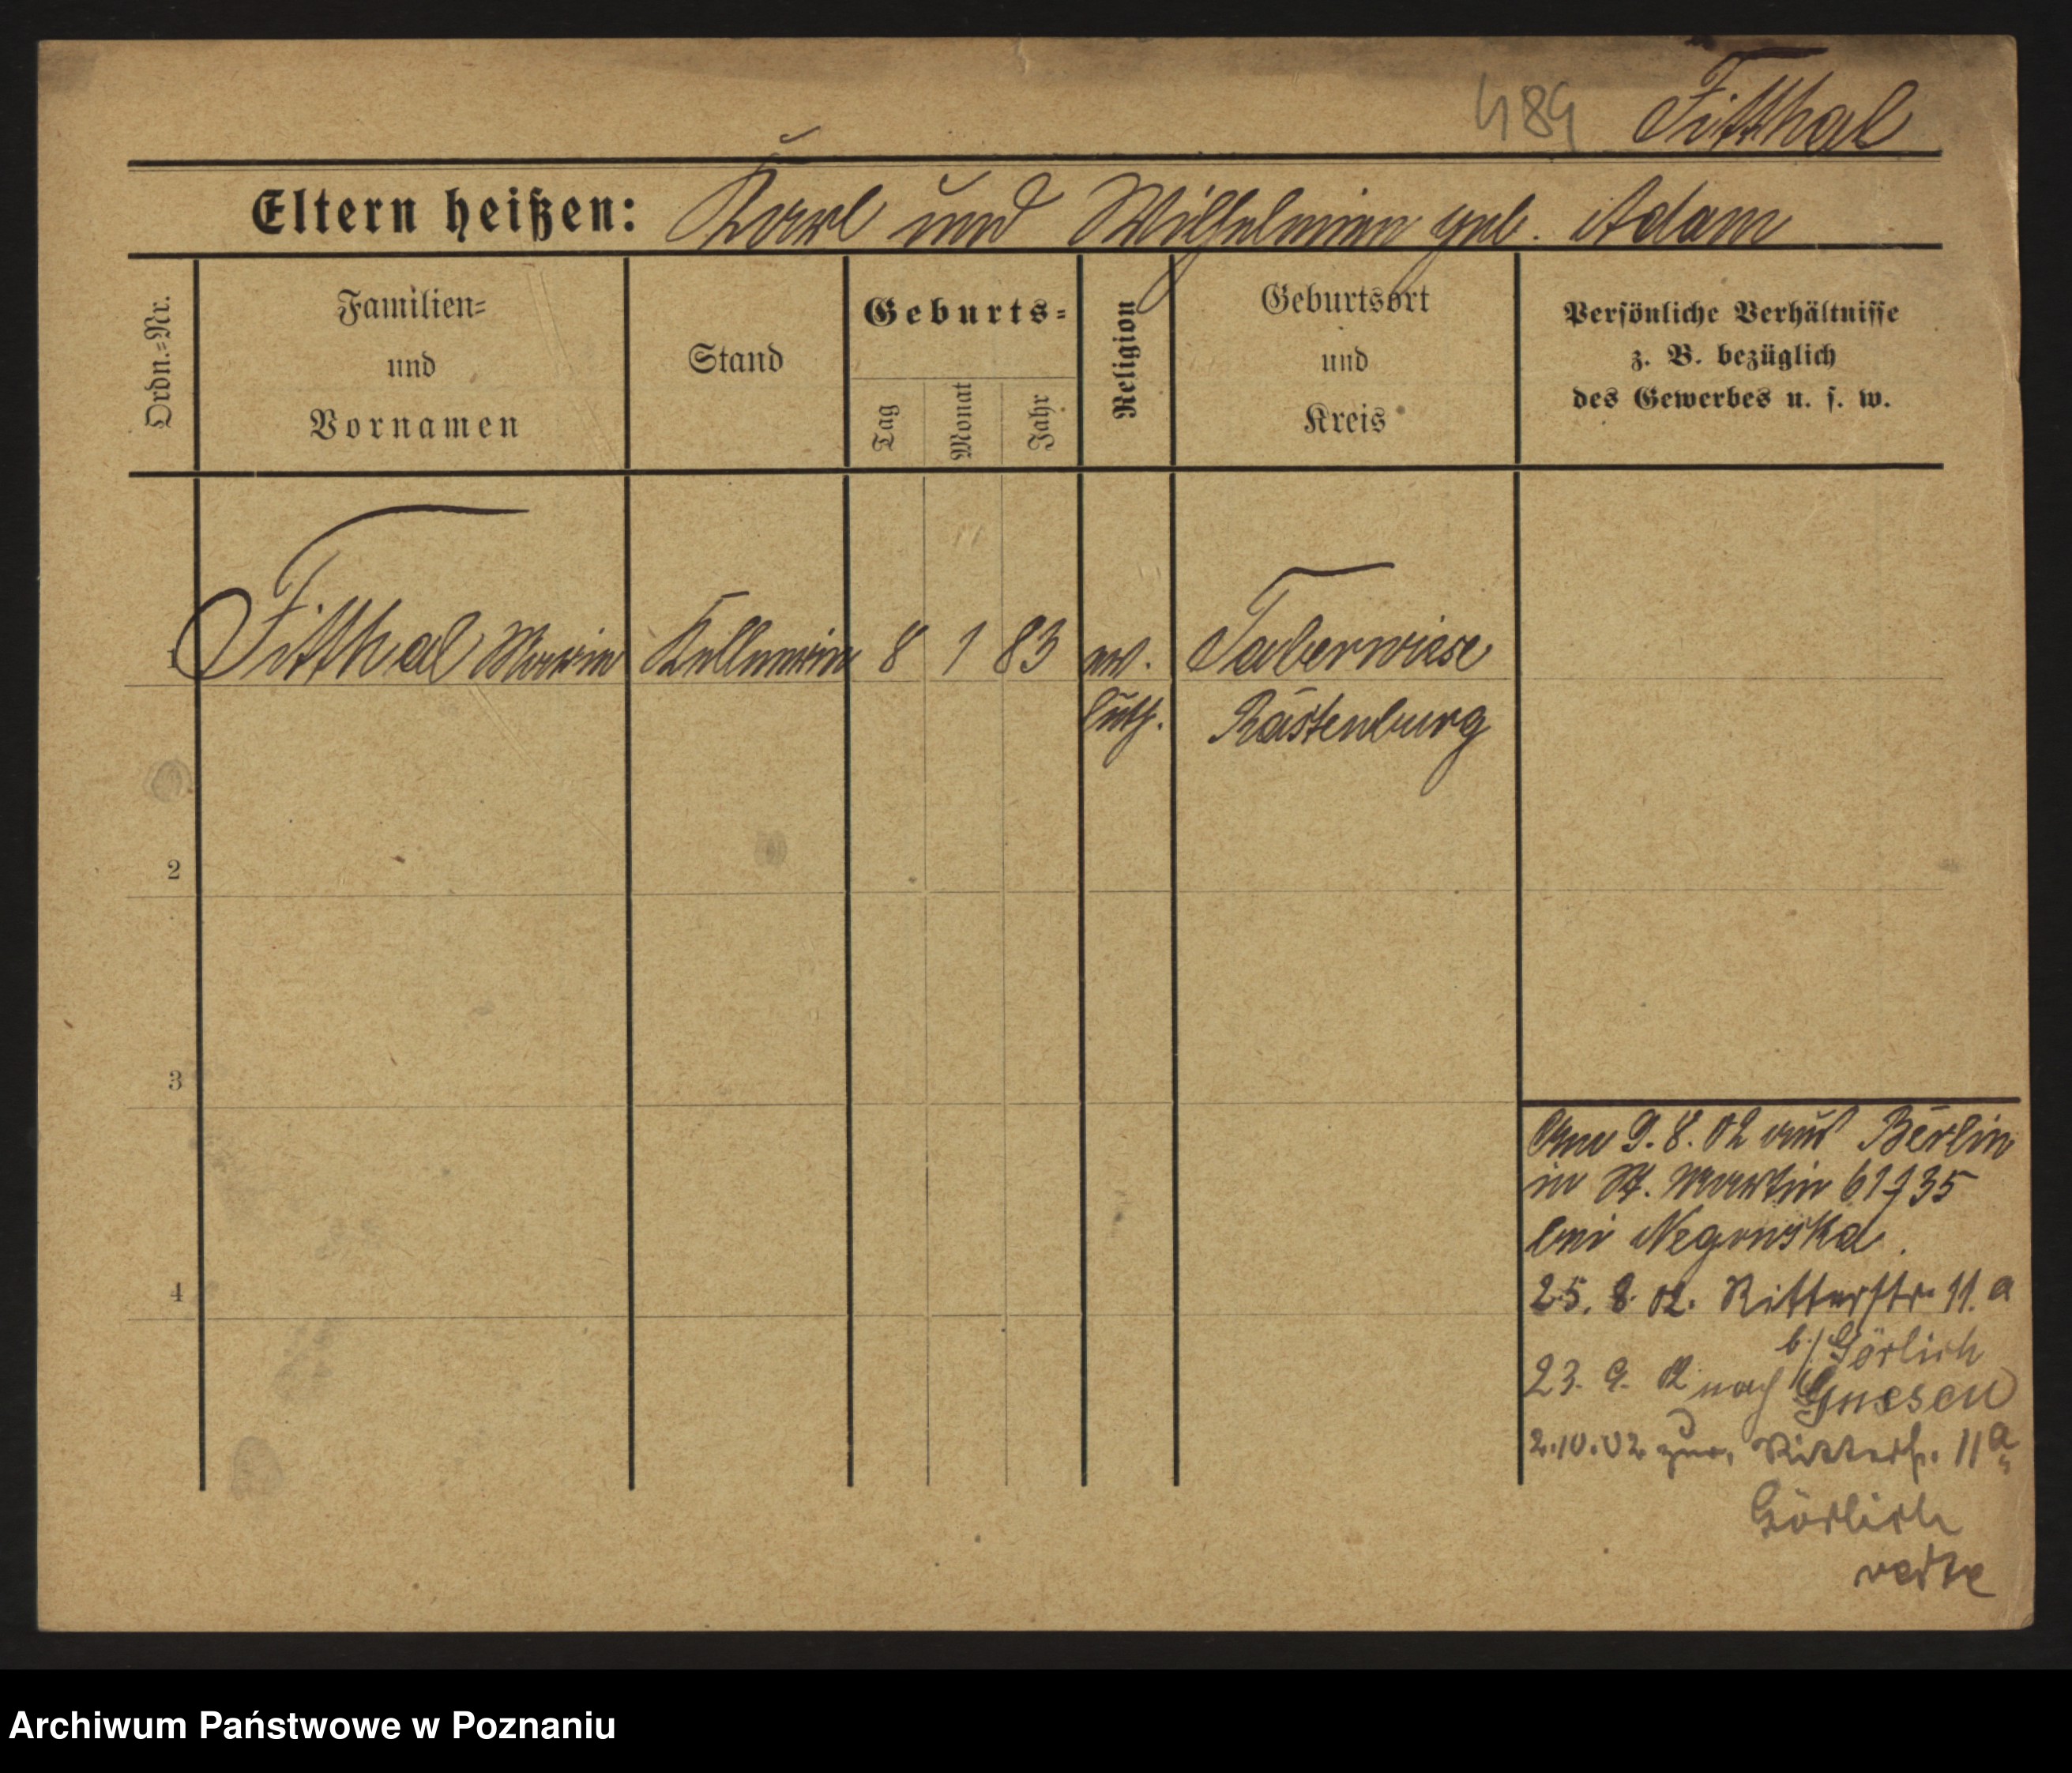 489 Fitthal
Eltern heißen: Karl und Wilhelmine geb. Adam
Ordn.=Nr.
Familien=
und
Vornamen
Stand
Geburts=
Tag
Monat
Jahr
Religion
Geburtsort
und
Kreis
Persönliche Verhältnisse
z. B. bezüglich
des Gewerbes u. s. w.
1 Fitthal Marie Kellnerin 8 1 83 ev. Taberwiese
luth. Rastenburg
2
3
4
9. 8. 02 aus Berlin
in St. Martin 61/35
bei Negonska.
25. 8. 02. Ritterstr. 11.a
b./ Görlich
23. 9. 02 nach Gnesen
2.10.02 zur. Ritterstr. 11a
Görlich
Archiwum Państwowe w Poznaniu